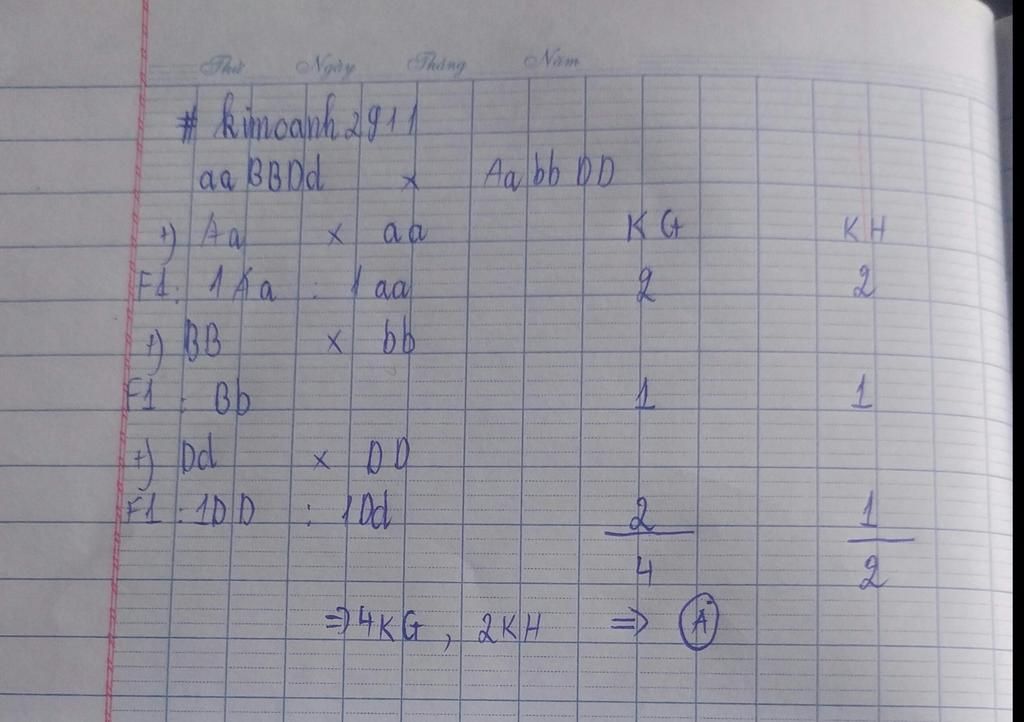 Thứ Ngày Tháng Năm
# kimoanh2911
aaBBDd x AabbDD
+) Aa x aa KG KH
F1: 1Aa : 1aa 2 2
+) BB x bb
F1 : Bb 1 1
+) Dd x DD
F1 : 1DD : 1Dd 2 1
4 2
=> 4KG, 2KH => A